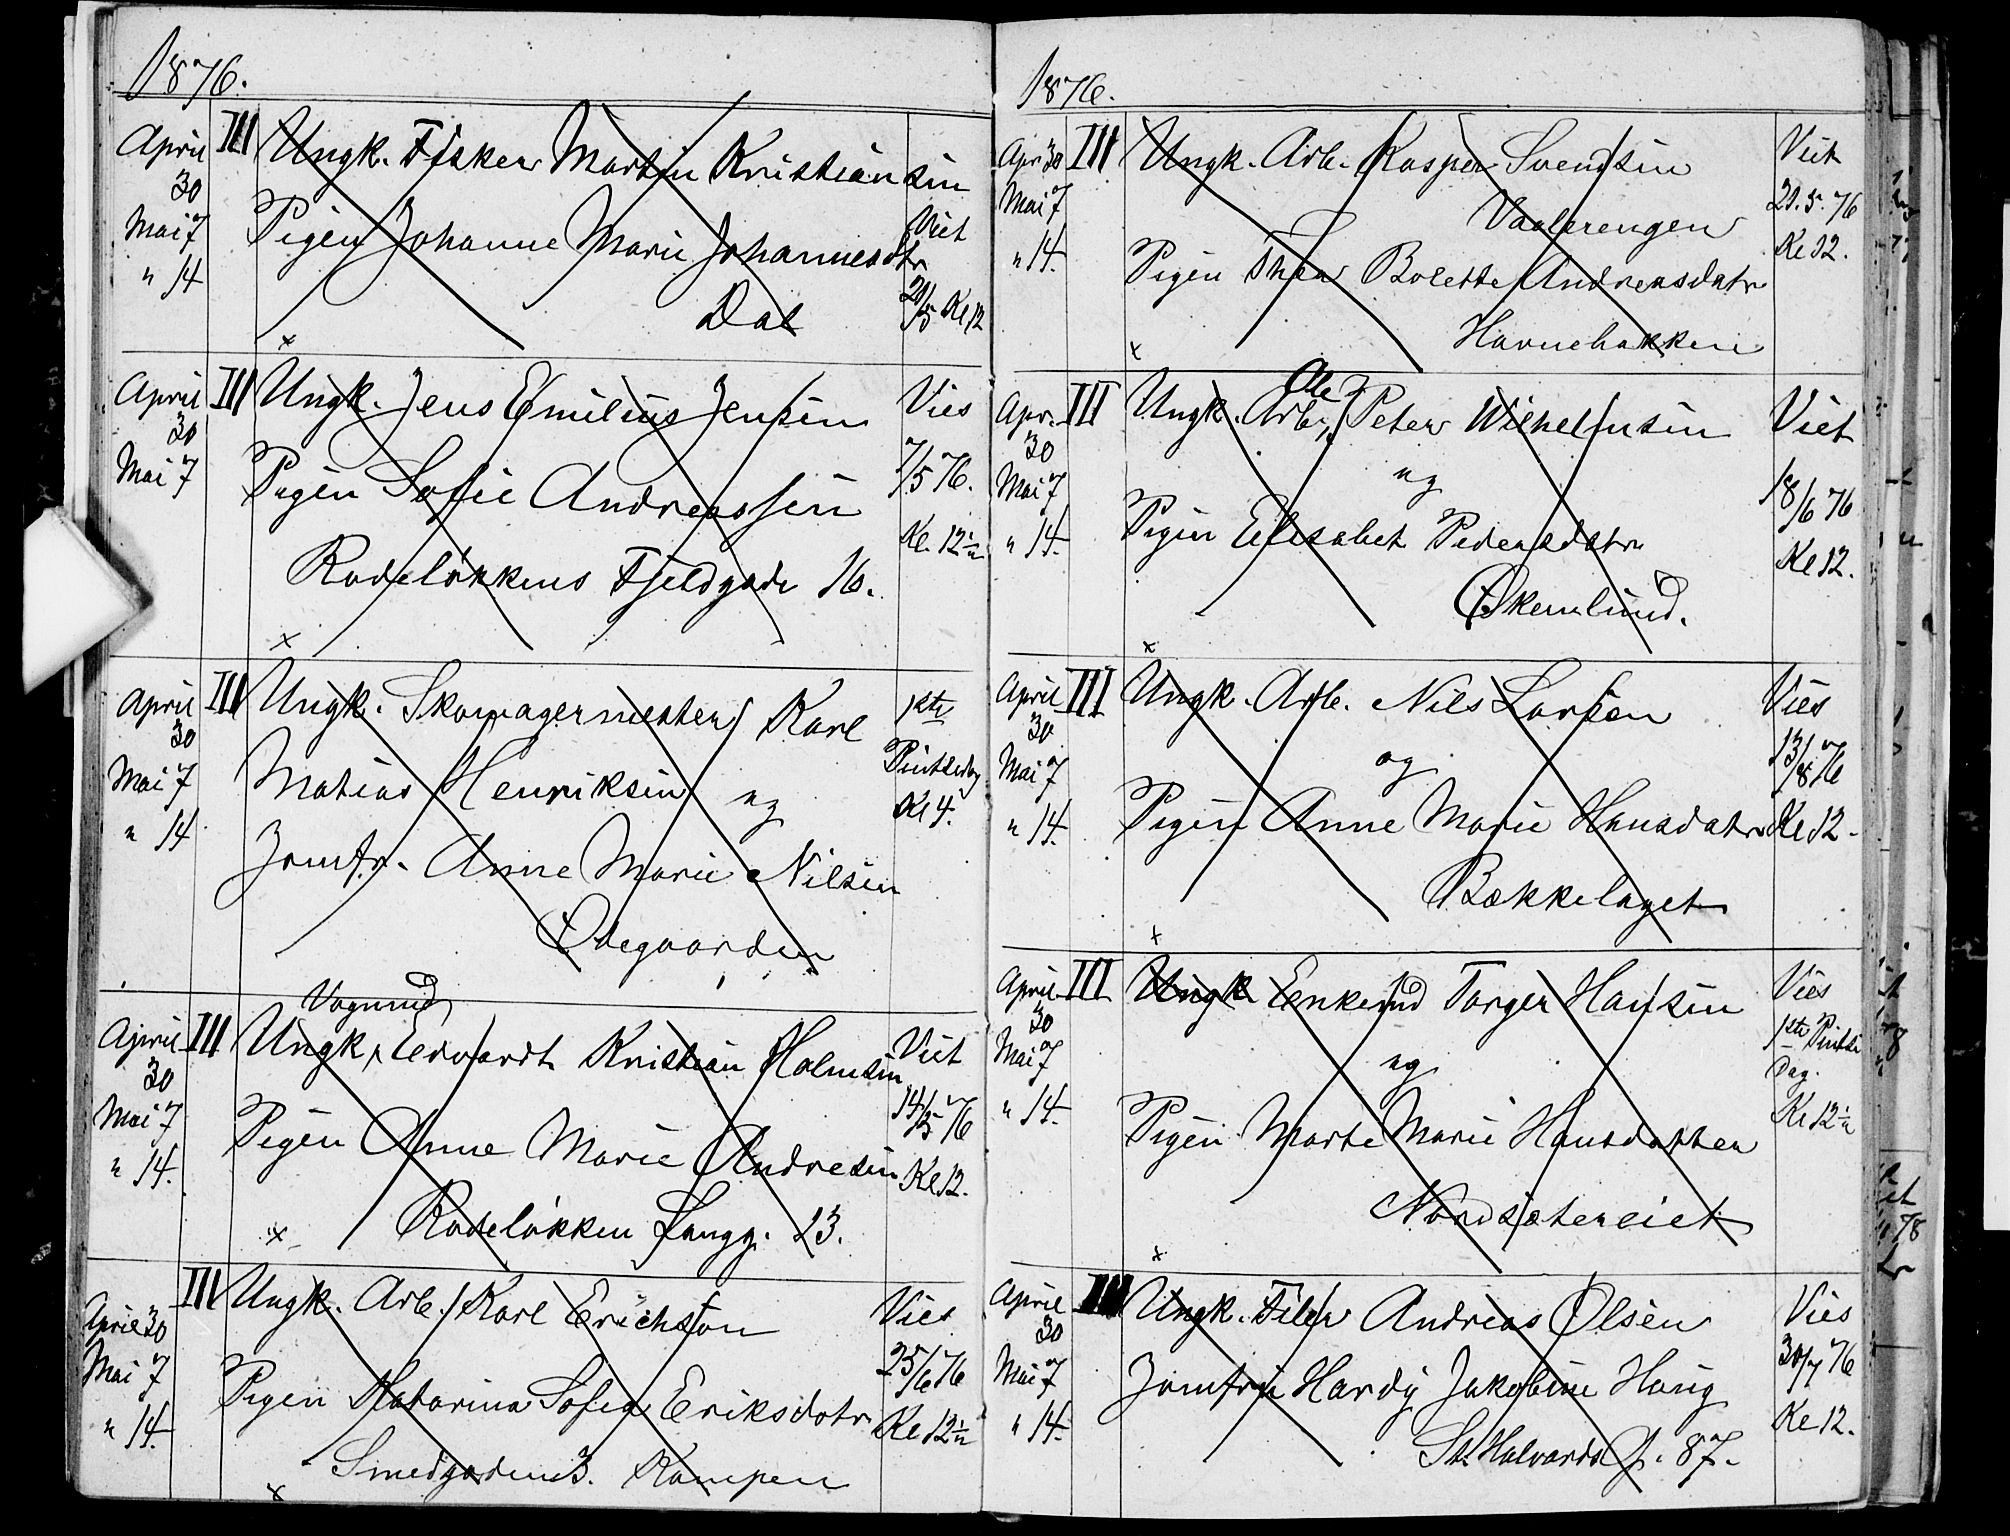 1876.
April 30 Mai 7 " 14
III
Ungk. Fisker Martin Kristiansen
Pigen Johanne Marie Johannesdtr
Dal
Viet 21/5 Kl 12
April 30 Mai 7
III
Ungk. Jens Emilius Jensen
Pigen Sofie Andreassen
Rodeløkkens Fjeldgade 16.
Vies 7/5 76. Kl. 12½
April 30 Mai 7 " 14
III
Ungk. Skomagermester Karl
Matias Henriksen og
Jomfr. Anne Marie Nilsen
Ødegaarden
1ste Pintsedag Kl 4.
April 30 Mai 7 " 14.
III
Vognmd
Ungk. Edvardt Kristian Holmsen
Pigen Anne Marie Andresen
Rodeløkken Langg. 23.
Viet 14/5 76 Kl 12.
April 30 Mai 7 " 14.
III
Ungk. Arb. Karl Erichson
Pigen Katarina Sofia Eriksdatr
Smedgaden 3. Kampen
Vies 25/6 76 Kl 12½
1876.
Apr 30 Mai 7 " 14.
III
Ungk. Arb. Kasper Svendsen
Vaalerengen
Pigen Thea Bolette Andreasdatr
Havnebakken
Viet 21.5.76 Kl 12.
Apr. 30 Mai 7 " 14.
III
Ole
Ungk. Arb. Peter Wilhelmsen
og
Pigen Elisabet Pedersdatr
Økernlund.
Viet 18/6 76 Kl 12.
April 30 Mai 7 " 14.
III
Ungk. Arb. Nils Larsen
og
Pigen Anne Marie Hansdatr
Bækkelaget
Vies 13/8 76 Kl 12.
April 30 Mai 7 " 14.
III
Ungk Enkemd Torger Hansen
og
Pigen Marte Marie Hansdatter
Nordsætereiet
Vies 1ste Pintse Dag. Kl 12½
April 30 Mai 7 " 14.
III
Ungk. Filer Andreas Olsen
Jomfru Hardy Jakobine Haug
St. Halvards G. 87.
Vies 30/7 76 Kl 12.